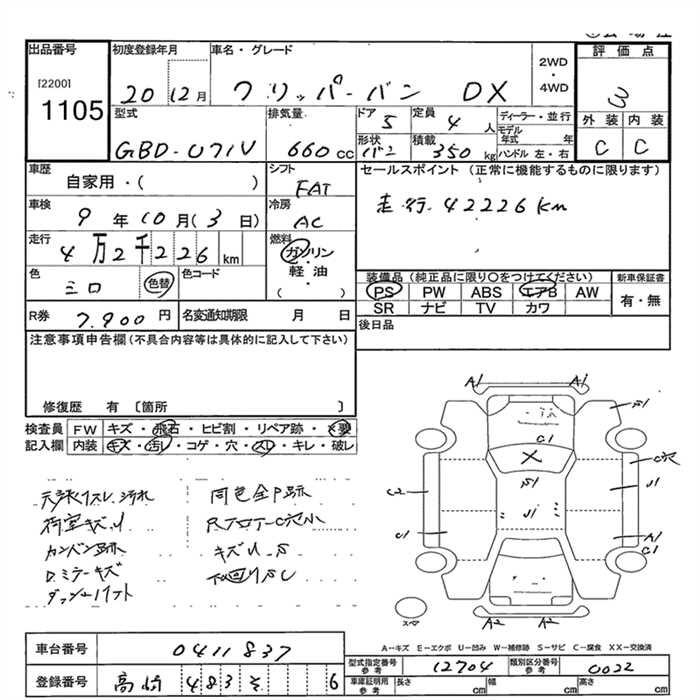 出品番号
[2200]
1105
初度登録年月
20 12月
車名・グレード
クリッパーバン DX
2WD
・
4WD
評価点
3
外装 内装
C C
型式
GBD-U71V
排気量
660 cc
ドア
5
定員
4 人
ディーラー・並行
モデル年式 年
形状
バン
積載
350 kg
ハンドル 左・右
車歴
自家用・( )
シフト
FAT
セールスポイント (正常に機能するものに限ります)
走行 42226km
車検
9 年 10 月 ( 3 日)
冷房
AC
走行
4万2千226 km
燃料
ガソリン
・
軽油
( )
色
シロ
色替
色コード
装備品 (純正品に限り〇をつけてください)
PS PW ABS エアB AW
SR ナビ TV カワ
新車保証書
有・無
R券 7,900 円
名変通知期限 月 日
後日品
注意事項申告欄 (不具合内容等は具体的に記入して下さい)
修復歴 有 〔箇所 〕
検査員
記入欄
FW キズ・飛石・ヒビ割・リペア跡・×要
内装 キズ・汚レ・コゲ・穴・スレ・キレ・破レ
荷室キズU
カンバン跡
D.ミラーキズ
同色全P跡
キズU.S
下回りSC
A1 A1
S1
C1
X
S1
C穴
U1
C2
C1
A1
C1
A2 A2
スペア
A―キズ E―エクボ U―凹み W―補修跡 S―サビ C―腐食 XX―交換済
車台番号 0411837
登録番号 高崎 483 そ 6
型式指定番号
参考
12704
類別区分番号
参考
0022
車庫証明用
参考
長さ cm
幅 cm
高さ cm